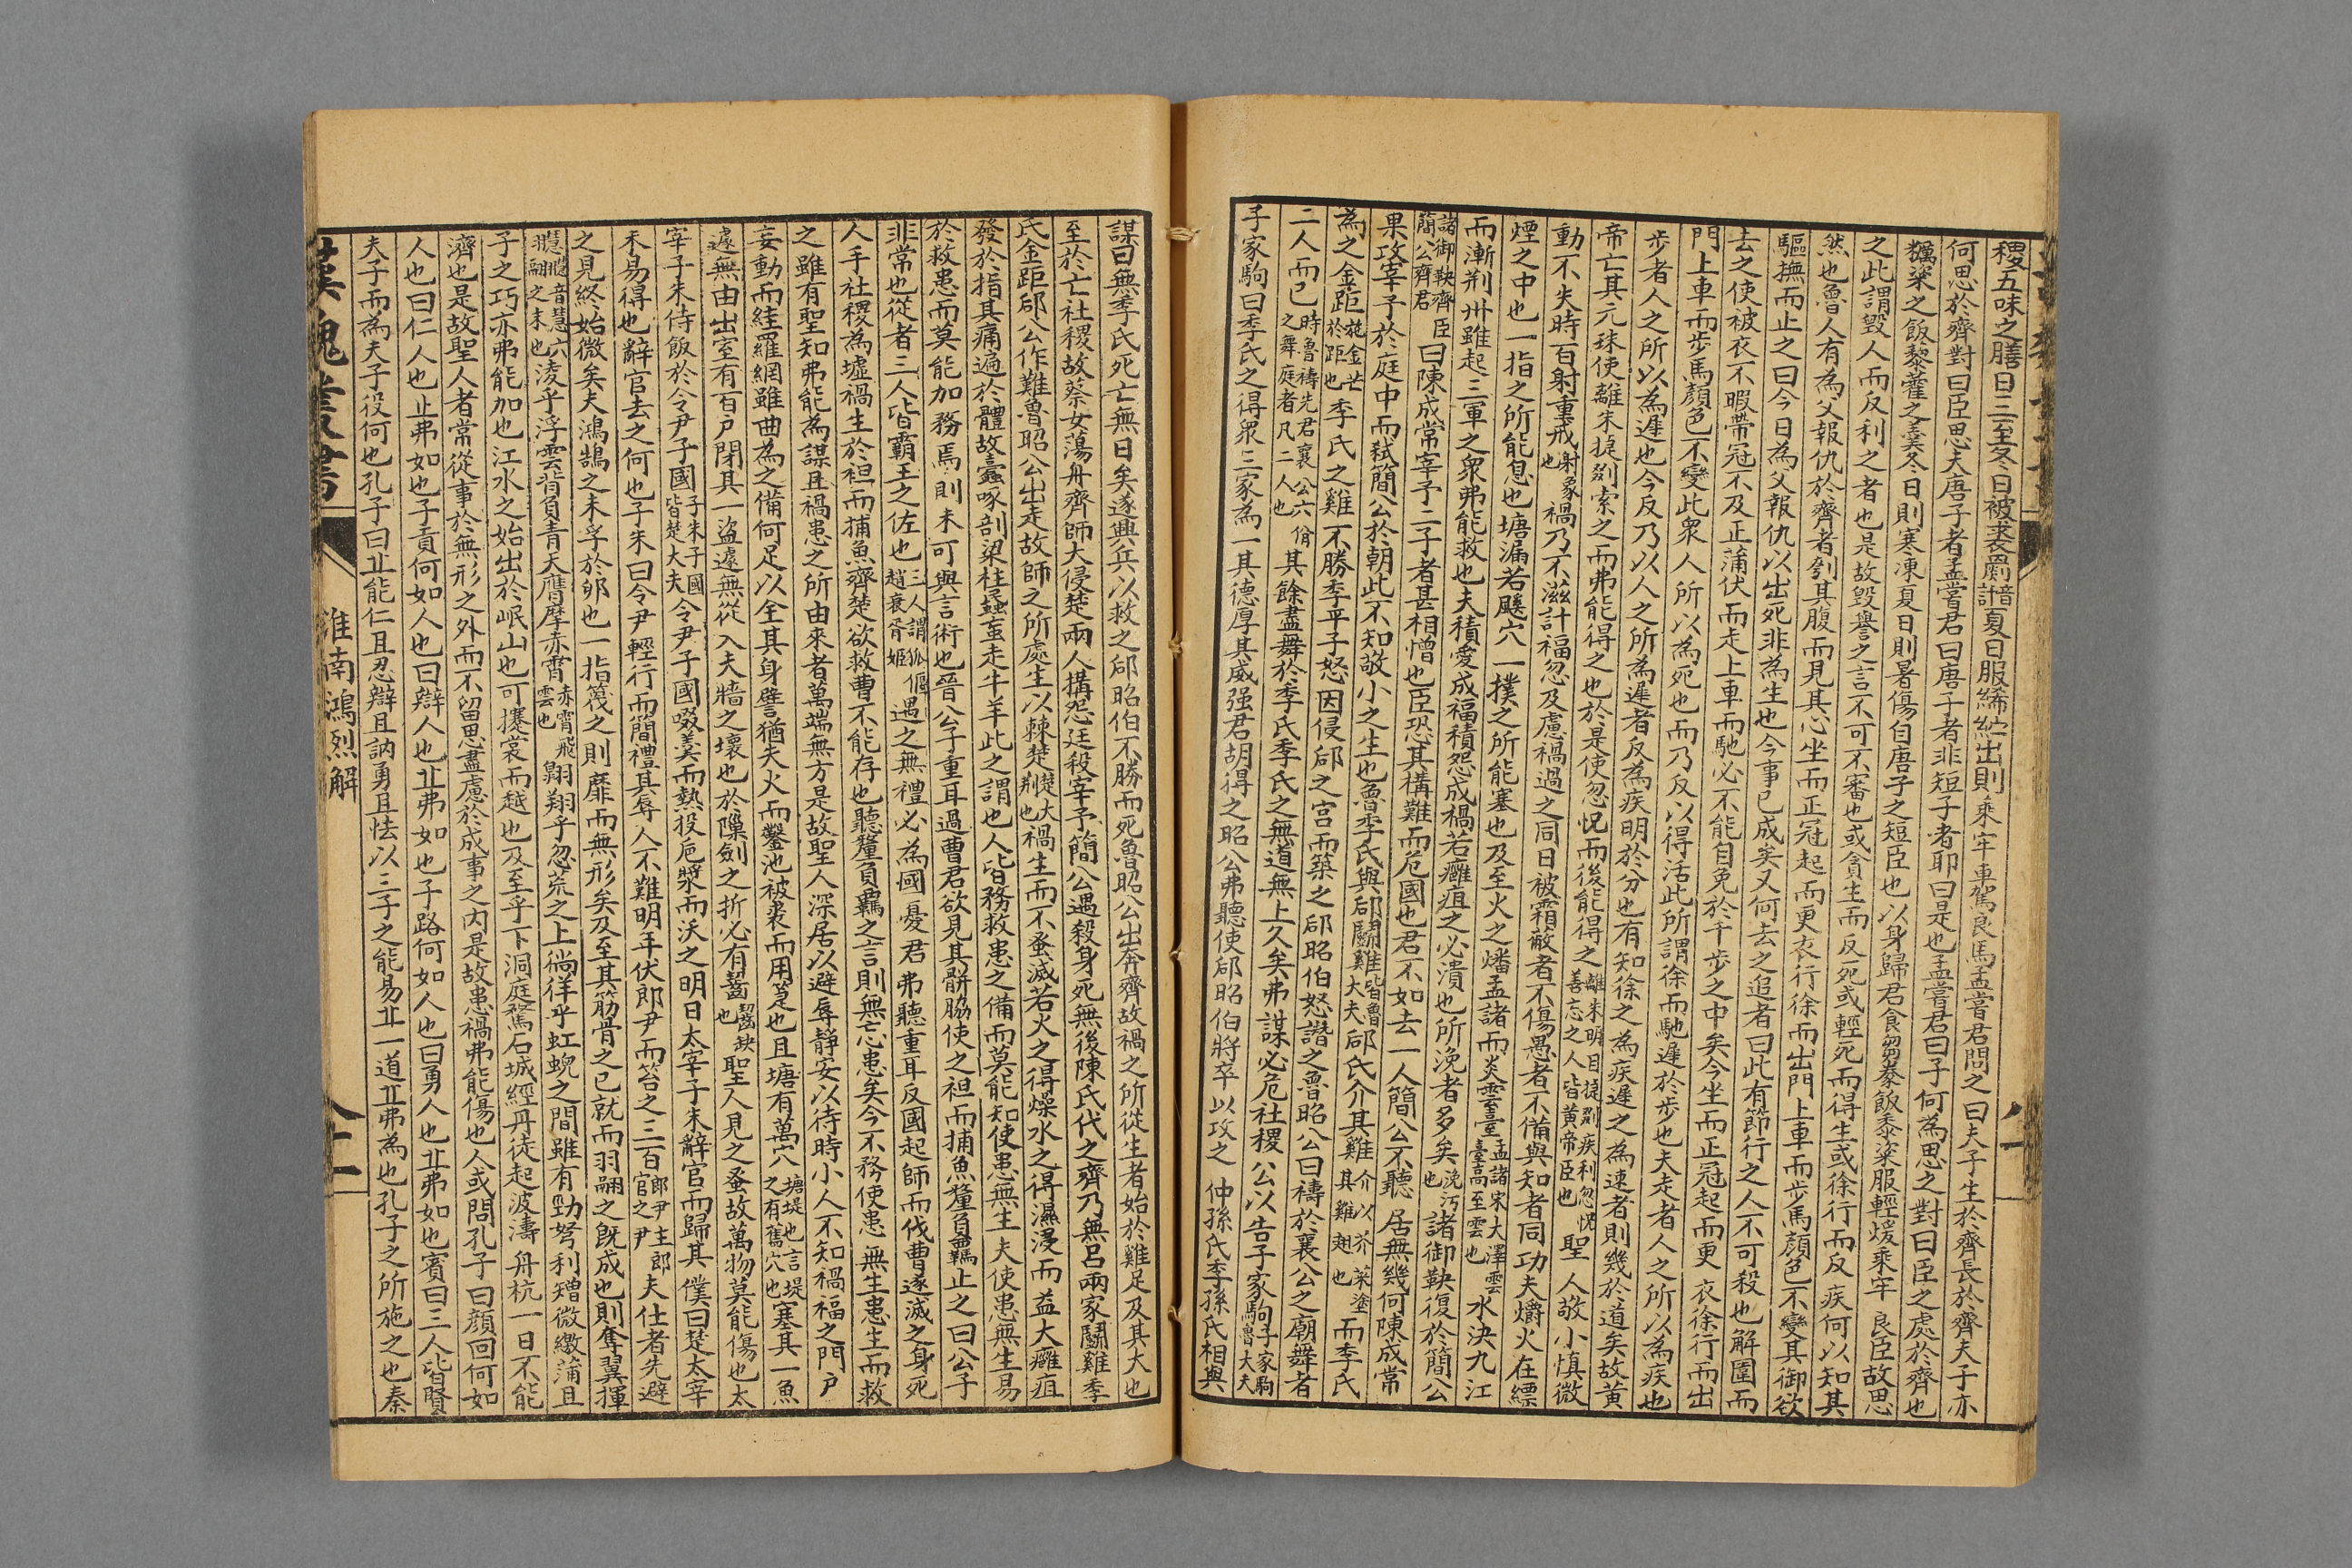 稷五味之膳日三至冬日被裘罽暗夏日服絺紵出則乘牢車駕良馬孟嘗君問之曰夫子生於齊長於齊夫子亦
何思於齊對曰臣思夫唐子者孟嘗君曰唐子者非短子者耶曰是也孟嘗君曰子何為思之對曰臣之處於齊也
糲粢之飯藜藿之羹冬日則寒凍夏日則暑傷自唐子之短臣也以身歸君食芻豢飯黍粢服輕煖乘牢良臣故思
之此謂毀人而反利之者也是故毀譽之言不可不審也或貪生而反死或輕死而得生或徐行而反疾何以知其
然也魯人有為父報仇於齊者刳其腹而見其心坐而正冠起而更衣行徐而出門上車而步馬顏色不變其御欲
驅撫而止之曰今日為父報仇以出死非為生也今事已成矣又何去之追者曰此有節行之人不可殺也解圍而
去之使被衣不暇帶冠不及正蒲伏而走上車而馳必不能自免於千步之中矣今坐而正冠起而更衣徐行而出
門上車而步馬顏色不變此眾人所以為死也而乃反以得活此所謂徐而馳遲於步也夫走者人之所以為疾也
步者人之所以為遲也今反乃以人之所為遲者反為疾明於分也有知徐之為疾遲之為速者則幾於道矣故黃
帝亡其元珠使離朱捷剟索之而弗能得之也於是使忽怳而後能得之離朱明目捷剟疾利忽怳善忘之人皆黃帝臣也聖人敬小慎微
動不失時百射重戒射象也禍乃不滋計福忽及慮禍過之同日被霜蔽者不傷愚者不備與知者同功夫爝火在縹
煙之中也一指之所能息也塘漏若鼷穴一撲之所能塞也及至火之燔孟諸而炎雲臺孟諸宋大澤雲臺高至雲也水決九江
而漸荊州雖起三軍之眾弗能救也夫積愛成福積怨成禍若癰疽之必潰也所浼者多矣浼汚也諸御鞅復於簡公
諸御鞅齊臣簡公齊君曰陳成常宰予二子者甚相憎也臣恐其構難而危國也君不如去一人簡公不聽居無幾何陳成常
果攻宰予於庭中而弒簡公於朝此不知敬小之生也魯季氏與郈氏鬬雞皆魯大夫郈氏介其雞介以芥菜塗其雞翅也而季氏
為之金距施金芒於距也季氏之雞不勝季平子怒因侵郈之宮而築之郈昭伯怒譖之魯昭公曰禱於襄公之廟舞者
二人而已時魯禱先君襄公六佾之舞庭者凡二人也其餘盡舞於季氏季氏之無道無上久矣弗謀必危社稷公以告子家駒子家駒魯大夫
子家駒曰季氏之得眾三家為一其德厚其威强君胡得之昭公弗聽使郈昭伯將卒以攻之仲孫氏季孫氏相與
謀曰無季氏死亡無日矣遂興兵以救之郈昭伯不勝而死魯昭公出奔齊故禍之所從生者始於雞足及其大也
至於亡社稷故蔡女蕩舟齊師大侵楚兩人搆怨廷殺宰予簡公遇殺身死無後陳氏代之齊乃無呂兩家鬬雞季
氏金距郈公作難魯昭公出走故師之所處生以棘楚楚大荊也禍生而不蚤滅若火之得燥水之得濕浸而益大癰疽
發於指其痛遍於體故蠧啄剖梁柱蟁䖟走牛羊此之謂也人皆務救患之備而莫能知使患無生夫使患無生易
於救患而莫能加務焉則未可與言術也晉公子重耳過曹曹君欲見其骿脇使之袒而捕魚釐負羈止之曰公子
非常也從者三人皆霸王之佐也三人謂狐偃趙衰胥姬遇之無禮必為國憂君弗聽重耳反國起師而伐曹遂滅之身死
人手社稷為墟禍生於袒而捕魚齊楚欲救曹不能存也聽釐負羈之言則無亡患矣今不務使患無生患生而救
之雖有聖知弗能為謀且禍患之所由來者萬端無方是故聖人深居以避辱靜安以待時小人不知禍福之門戶
妄動而絓羅網雖曲為之備何足以全其身譬猶失火而鑿池被裘而用箑也且塘有萬穴塘堤也言堤之有舊穴也塞其一魚
遽無由出室有百戶閉其一盜遽無從入夫牆之壞也於隟劍之折必有齧齧缺也聖人見之蚤故萬物莫能傷也太
宰子朱侍飯於令尹子國子朱子國皆楚大夫令尹子國啜羹而熱投卮漿而沃之明日太宰子朱辭官而歸其僕曰楚太宰
未易得也辭官去之何也子朱曰令尹輕行而簡禮其辱人不難明年伏郎尹而笞之三百郎尹主郎官之尹夫仕者先避
之見終始微矣夫鴻鵠之未孚於卵也一指蔑之則靡而無形矣及至其筋骨之已就而羽翮之既成也則奪翼揮
䎚䎚音慧六翮之末也淩乎浮雲背負青天膺摩赤霄赤霄飛雲也翺翔乎忽荒之上徜徉乎虹蜺之間雖有勁弩利矰微繳蒲且
子之巧亦弗能加也江水之始出於岷山也可攐裳而越也及至乎下洞庭騖石城經丹徒起波濤舟杭一日不能
濟也是故聖人者常從事於無形之外而不留思盡慮於成事之內是故患禍弗能傷也人或問孔子曰顏回何如
人也曰仁人也丘弗如也子貢何如人也曰辯人也丘弗如也子路何如人也曰勇人也丘弗如也賓曰三人皆賢
夫子而為夫子役何也孔子曰丘能仁且忍辯且訥勇且怯以三子之能易丘一道丘弗為也孔子之所施之也秦
漢魏叢書
淮南鴻烈解